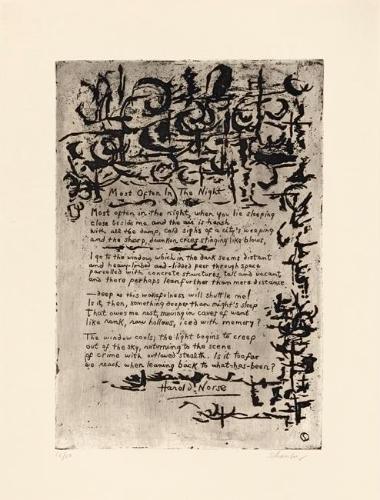 Most Often In The Night
Most often in the night, when you lie sleeping
close beside me and the air is harsh
with all the damp, cold sighs of a city's weeping
and the sharp, drunken cries stinging like blows,
I go to the window which in the dark seems distant
and heavy-limbed and -lidded peer through space
parcelled with concrete structures, tall and vacant
and there perhaps lean further than mere distance
—deep as this wakefulness will shuttle me!
Is it, then, something deeper than night's sleep
That owes me rest, moving in caves of want
like rank, raw hollows, iced with memory?
The window cools; the light begins to creep
out of the sky, returning to the scene
of crime with outlawed stealth. Is it too far
we reach when leaning back to what-has-been?
Harold Norse